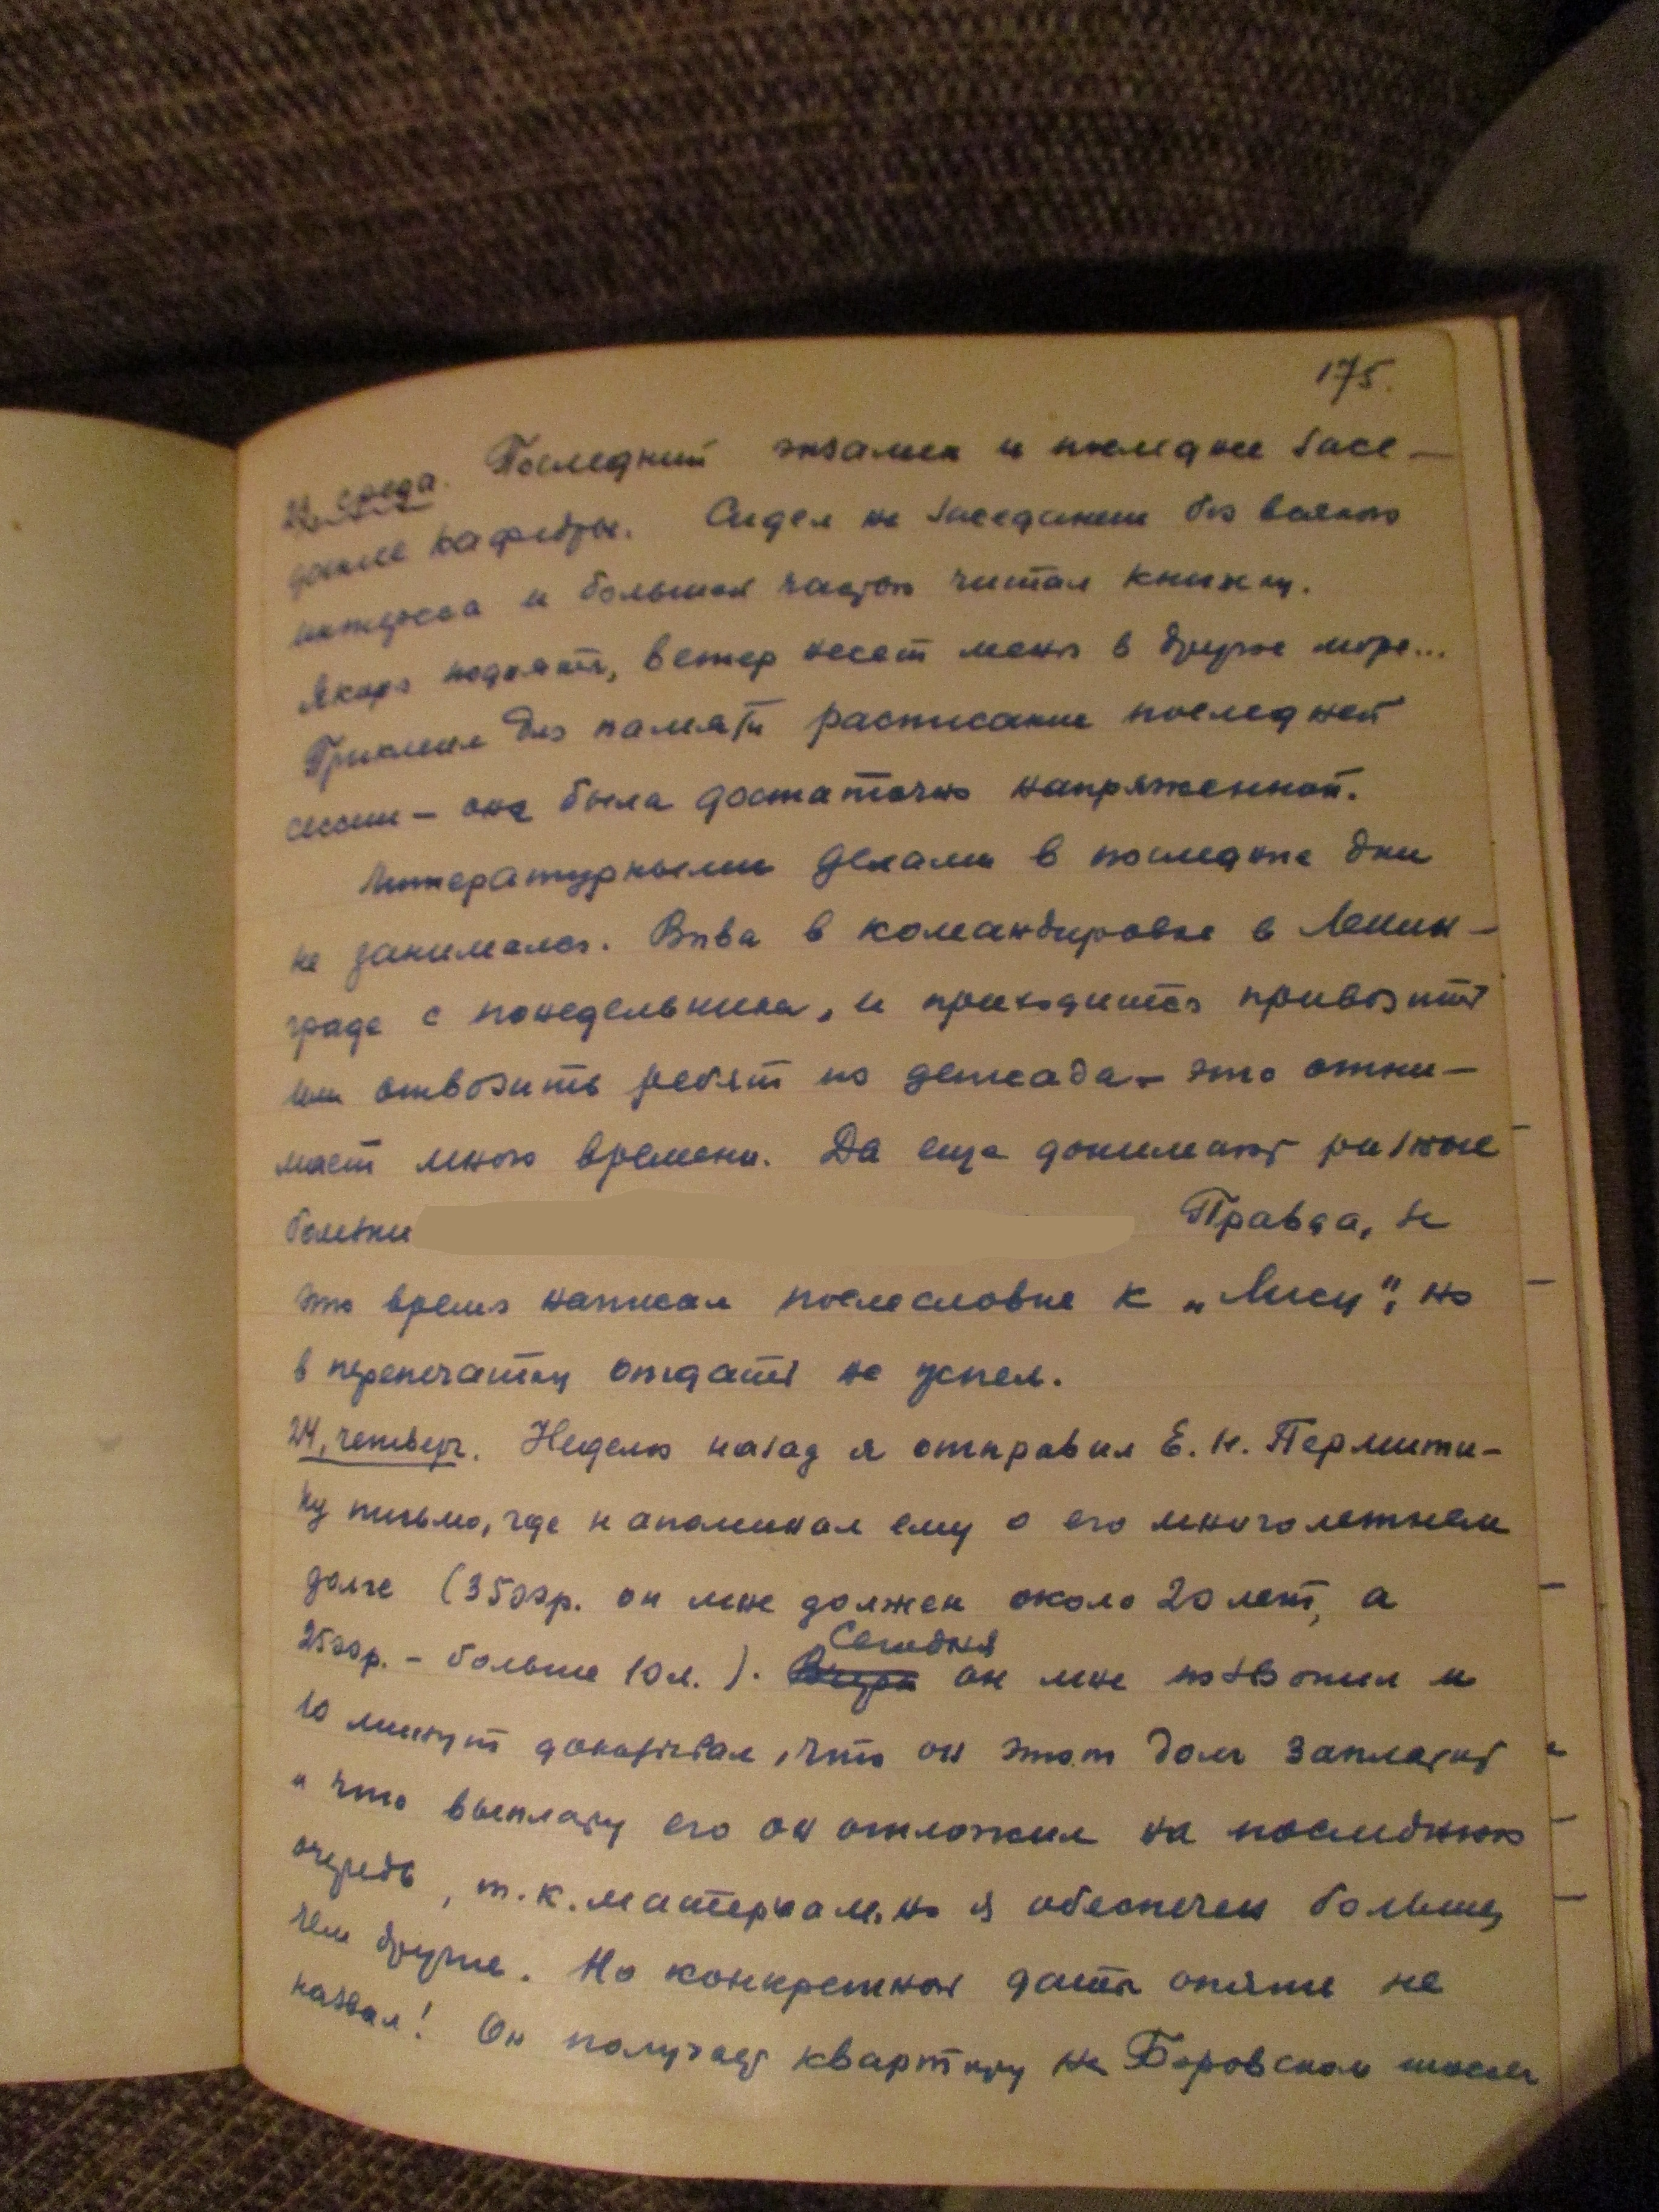 175.
23, среда. Последний экзамен и последнее засе-
дание кафедры. Сидел на заседании без всякого
интереса и большей частью читал книжку.
Якорь поднят, ветер несет меня в другое море...
Приклеил для памяти расписание последней
сессии – она была достаточно напряженной.
Литературными делами в последние дни
не занимался. Вива в командировке в Ленин-
граде с понедельника, и приходится привозить
или отвозить ребят из детсада – это отни-
мает много времени. Да еще донимают разные
болезни
Правда, за
это время написал послесловие к „Лису", но
в перепечатку отдать не успел.
24, четверг. Неделю назад я отправил Е. Н. Пермити-
ну письмо, где напоминал ему о его многолетнем
долге (3500р. он мне должен около 20 лет, а
2500р. – больше 10 л.). Вчера Сегодня он мне позвонил и
10 минут доказывал, что он этот долг заплатит
и что выплату его он отложил на последнюю
очередь, т.к. материально я обеспечен больше,
чем другие. Но конкретной даты опять не
назвал! Он получает квартиру на Боровском шоссе